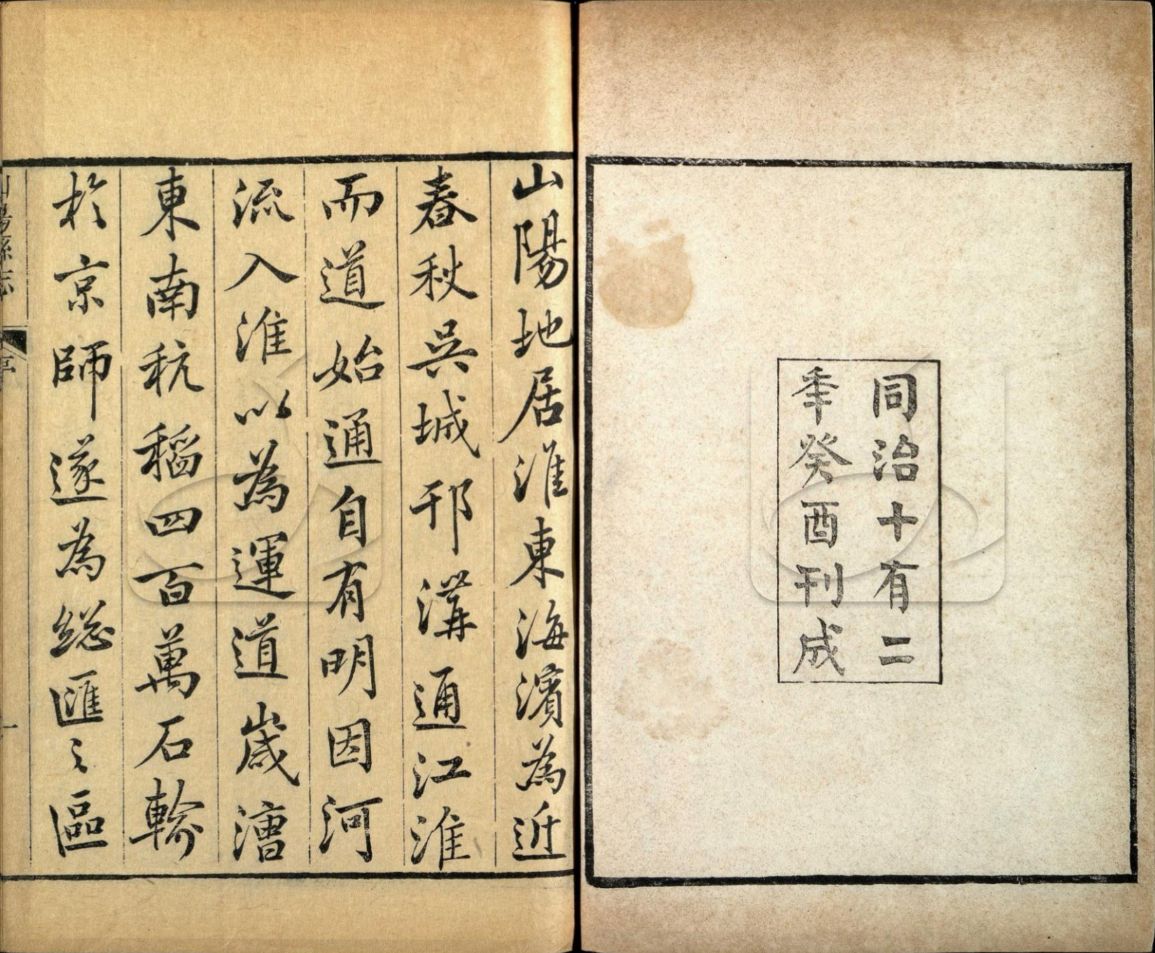 同治十有二
秊癸酉刊成
山陽地居淮東海濱為近
春秋吳城邗溝通江淮
而道始通自有明因河
流入淮以為運道歲漕
東南秔稻四百萬石輸
於京師遂為總匯之區
山陽縣志
序
一